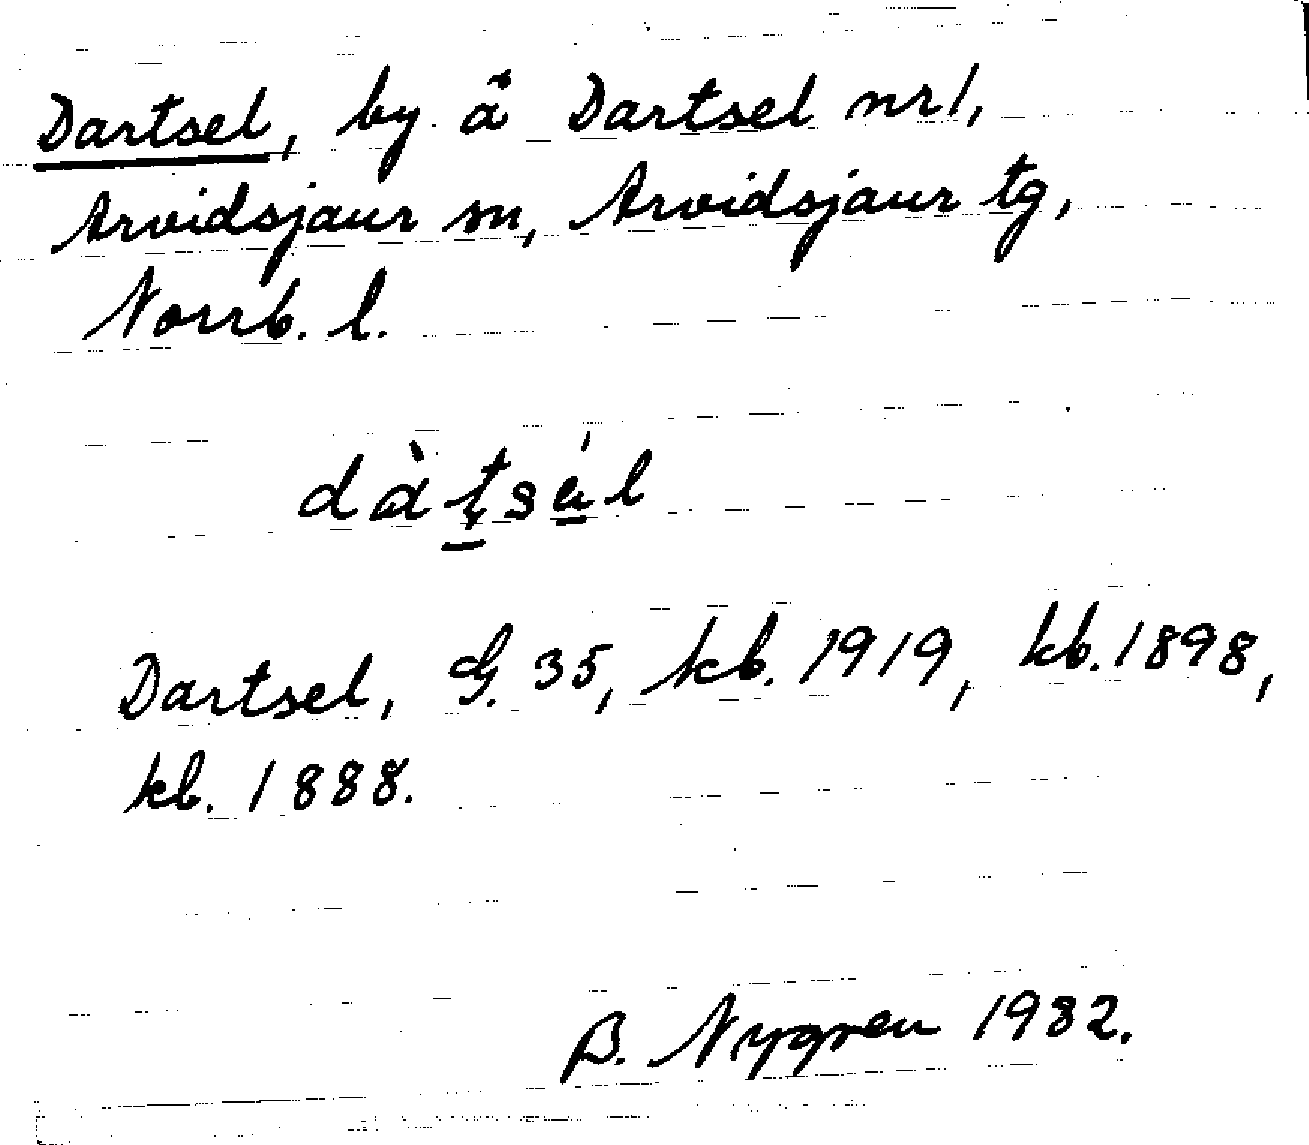 Dartsel, by å Dartsel nr 1,
Arvidsjaur sn, Arvidsjaur tg,
Norrb. l.
dàṭsál
Dartsel, G. 35, kb. 1919, kb. 1898,
kb. 1888.
B. Nygren 1982.